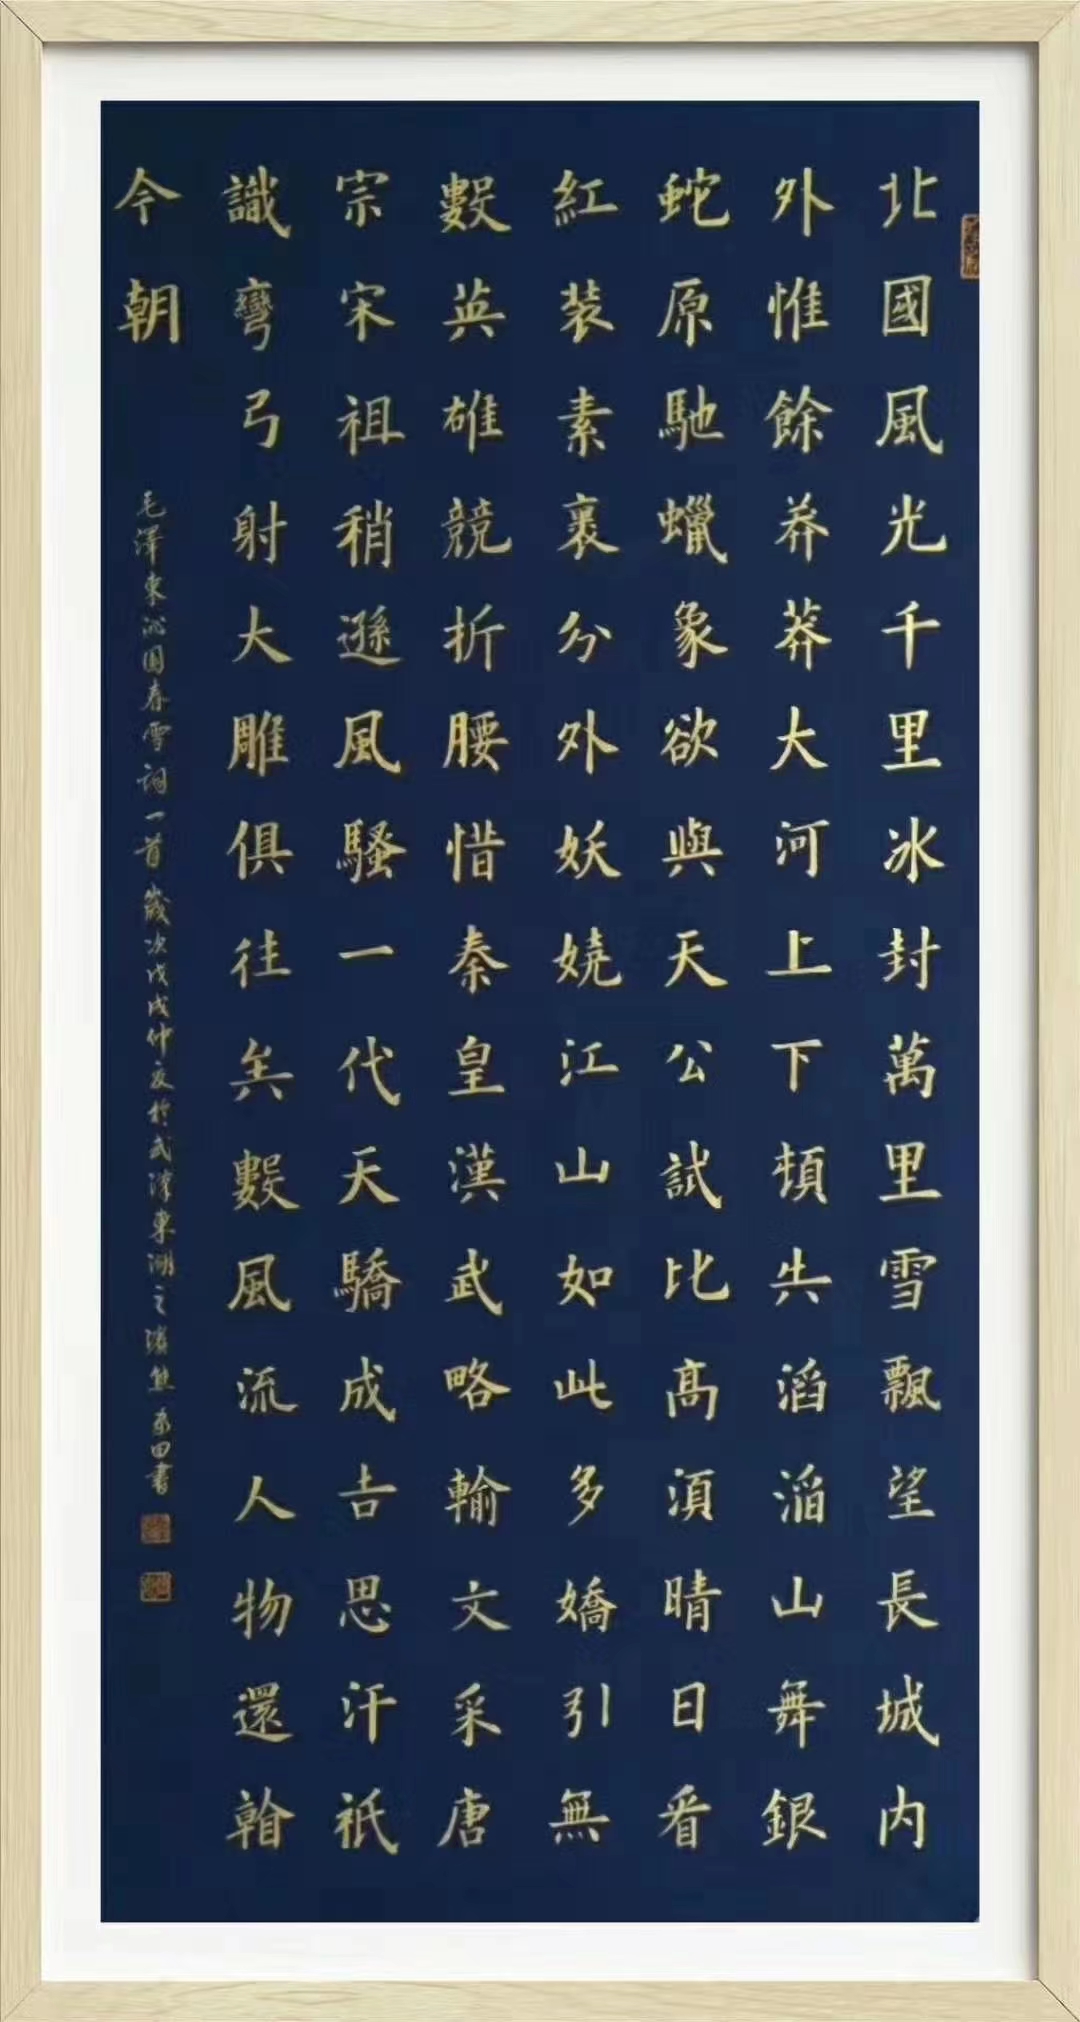 北國風光千里冰封萬里雪飄望長城内
外惟餘莽莽大河上下頓失滔滔山舞銀
蛇原馳蠟象欲與天公試比高須晴日看
紅装素裹分外妖嬈江山如此多嬌引無
數英雄競折腰惜秦皇漢武略輸文采唐
宗宋祖稍遜風騷一代天驕成吉思汗祇
識彎弓射大雕俱往矣數風流人物還看
今朝
毛澤東沁園春雪詞一首歲次戊戌仲夏於武漢東湖之濱熊田書